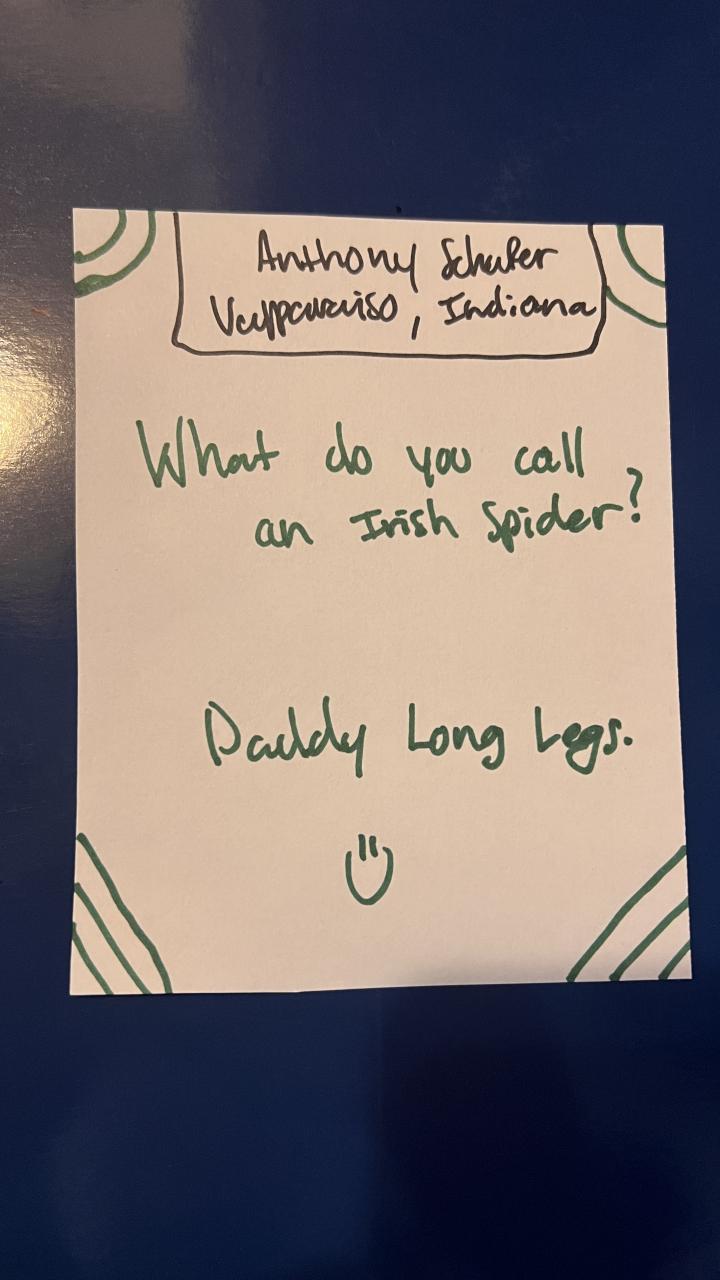 Anthony Schafer
Valparaiso, Indiana
What do you call
an Irish Spider?
Daddy Long Legs.